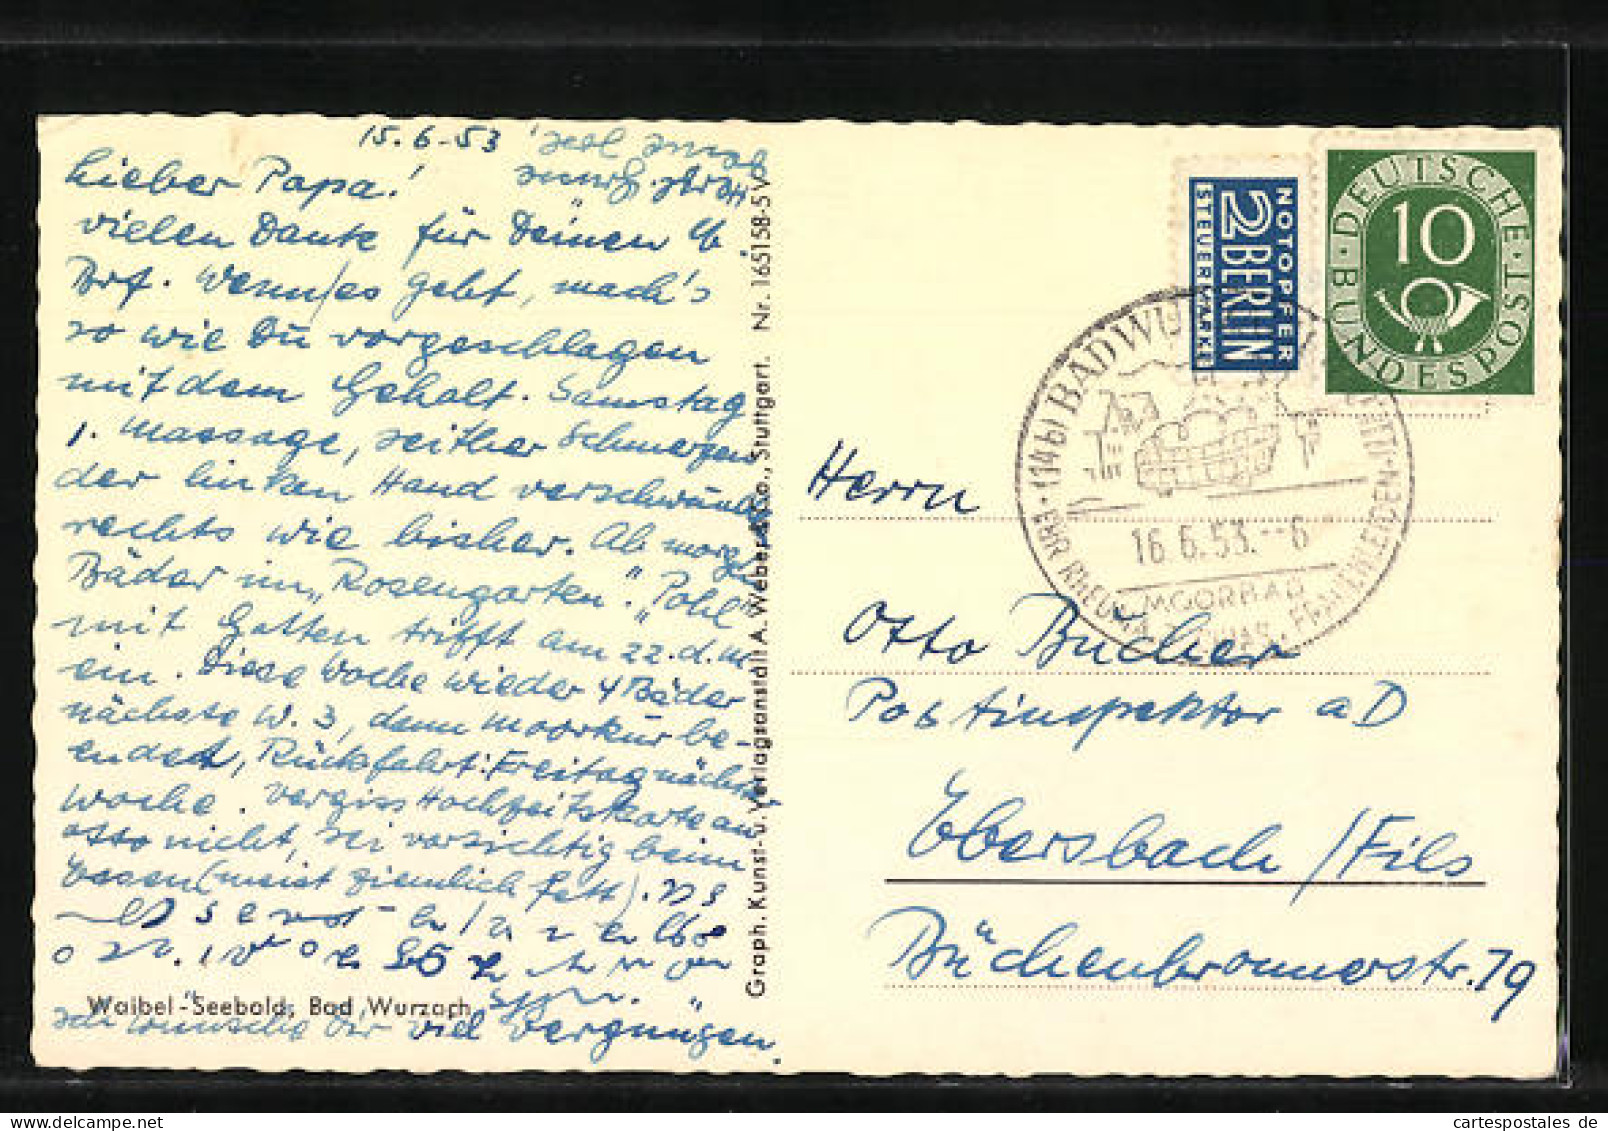 15.6.53
Lieber Papa!
Herzl. Grüsse
vielen Dank für Deinen lb.
Brf. Wenn es geht, mach's
so wie Du vorgeschlagen
mit dem Gehalt. Samstag
1. Massage, seither Schmerzen
der linken Hand verschwunden
rechts wie bisher. Ab morgen
Bäder im „Rosengarten“. „Pohl“
mit Gatten trifft am 22. d. M.
ein. Diese Woche wieder 4 Bäder
nächste W. 3, dann Moorkur be-
endet, Rückfahrt: Freitag nächster
Woche. Vergiss Hochzeitskarte an
Otto nicht, sei vorsichtig beim
Essen (meist ziemlich fett).
Waibel-Seebold, Bad Wurzach
Ich wünsche Dir viel Vergnügen.
Graph. Kunst- u. Verlagsanstalt A. Weber & Co., Stuttgart. Nr. 165158-5V
NOTOPFER
2 BERLIN
STEUERMARKE
DEUTSCHE BUNDESPOST
10
(14b) BAD WU
16.6.53.--6
MOORBAD
FÜR RHEUMA FRAUENLEIDEN
Herrn
Otto Bücher
Postinspektor aD
Ebersbach/Fils
Büchenbronnerstr. 79
cartespostales de